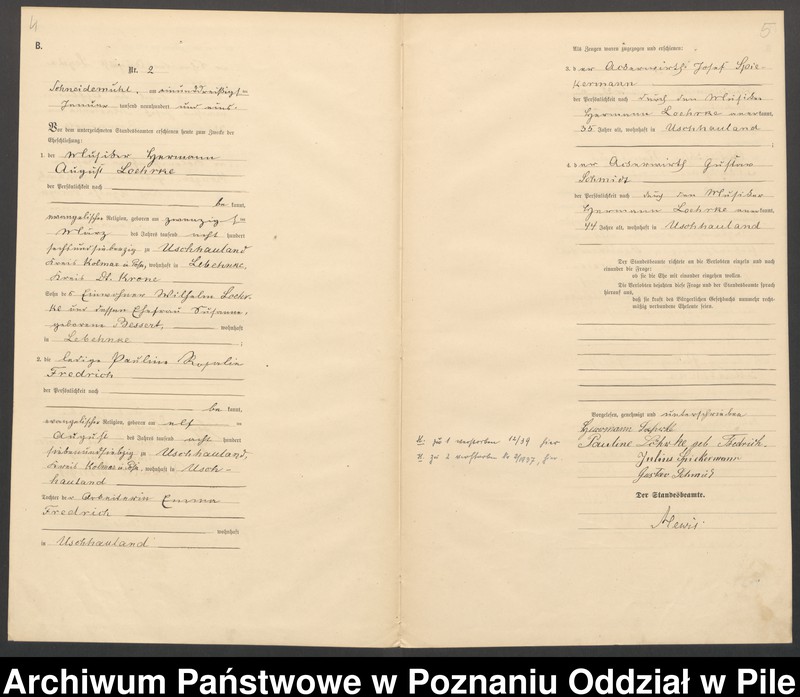 4
B.
Nr. 2
Schneidemühl, am einunddreißigsten
Januar tausend neunhundert und eins.
Vor dem unterzeichneten Standesbeamten erschienen heute zum Zwecke der
Eheschließung:
1. der Musiker Hermann
August Loehrke
der Persönlichkeit nach
be kannt,
evangelischer Religion, geboren am zwanzigsten
März des Jahres tausend acht hundert
sechsundsiebzig zu Uschhauland
Kreis Kolmar i. Pos., wohnhaft in Lebehnke,
Kreis Dt. Krone
Sohn des Einwohner Wilhelm Loehr-
ke und dessen Ehefrau Susanne,
geborene Bessert, wohnhaft
in Lebehnke
2. die ledige Pauline Rosalie
Fredrich
der Persönlichkeit nach
be kannt,
evangelischer Religion, geboren am elften
August des Jahres tausend acht hundert
siebenundsiebzig zu Uschhauland,
Kreis Kolmar i. Pos., wohnhaft in Usch-
hauland
Tochter der Arbeiterin Emma
Fredrich
wohnhaft
in Uschhauland
5
Als Zeugen waren zugezogen und erschienen:
3. der Ackerwirth Josef Spie-
kermann
der Persönlichkeit nach durch den Musiker
Hermann Loehrke anerkannt,
35 Jahre alt, wohnhaft in Uschhauland
;
4. der Ackerwirth Gustav
Schmidt
der Persönlichkeit nach durch den Musiker
Hermann Loehrke anerkannt,
44 Jahre alt, wohnhaft in Uschhauland
Der Standesbeamte richtete an die Verlobten einzeln und nach
einander die Frage:
ob sie die Ehe mit einander eingehen wollen.
Die Verlobten bejahten diese Frage und der Standesbeamte sprach
hierauf aus,
daß sie kraft des Bürgerlichen Gesetzbuchs nunmehr recht-
mäßig verbundene Eheleute seien.
Vorgelesen, genehmigt und unterschrieben
Hermann Loehrke
Pauline Löhrke geb. Fredrich
Julius Spickermann
Gustav Schmidt
Der Standesbeamte.
zu 1 verstorben 12/39 hier
zu 2 verstorben
Archiwum Państwowe w Poznaniu Oddział w Pile